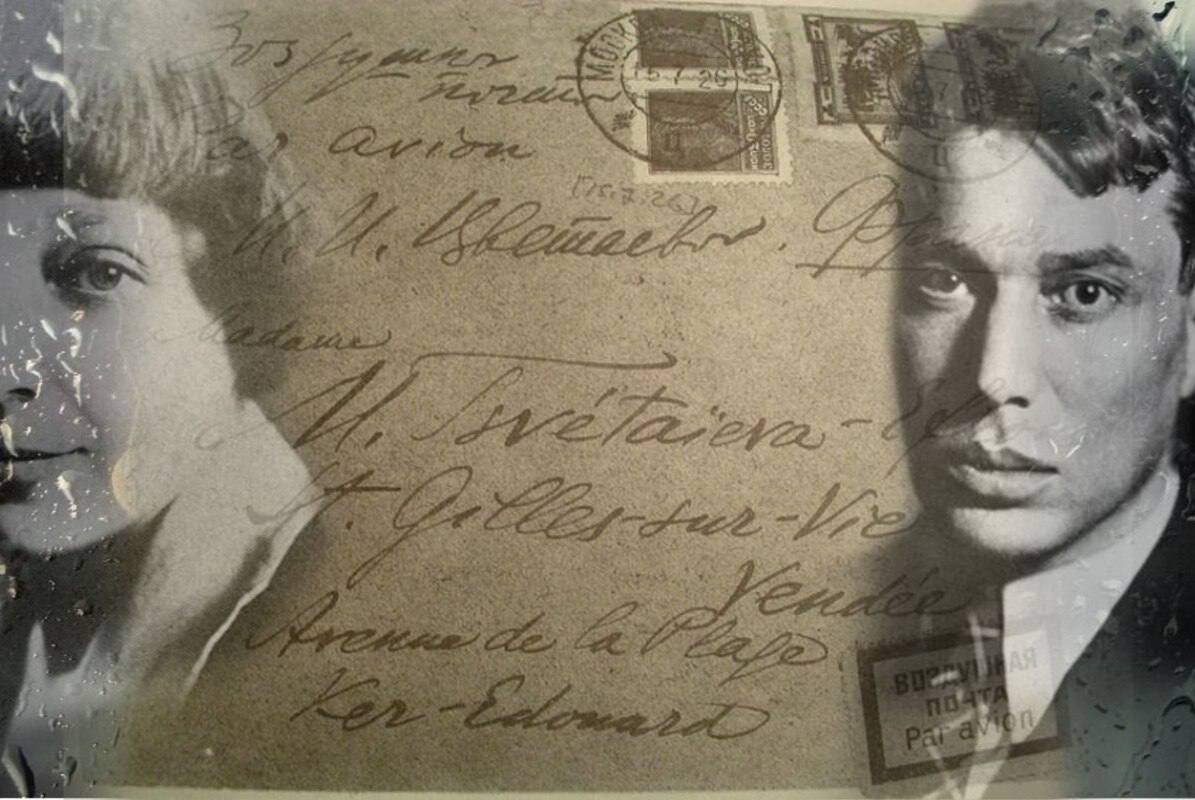 Воздушная почта
Par avion
МОСКВА
15 7 26
[15.7.26]
М. И. Цветаевой. Франция
Madame
M. Tsvétaïeva-
St. Gilles-sur-Vie
Vendée
Avenue de la Plage
Ker-Edouard
ВОЗДУШНАЯ
ПОЧТА
Par avion